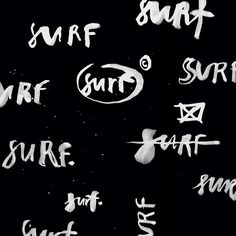 SURF
SURF
©
surf.
SURF
SURF
SURF.
SURF
surf.
SURF
SURF
SURF